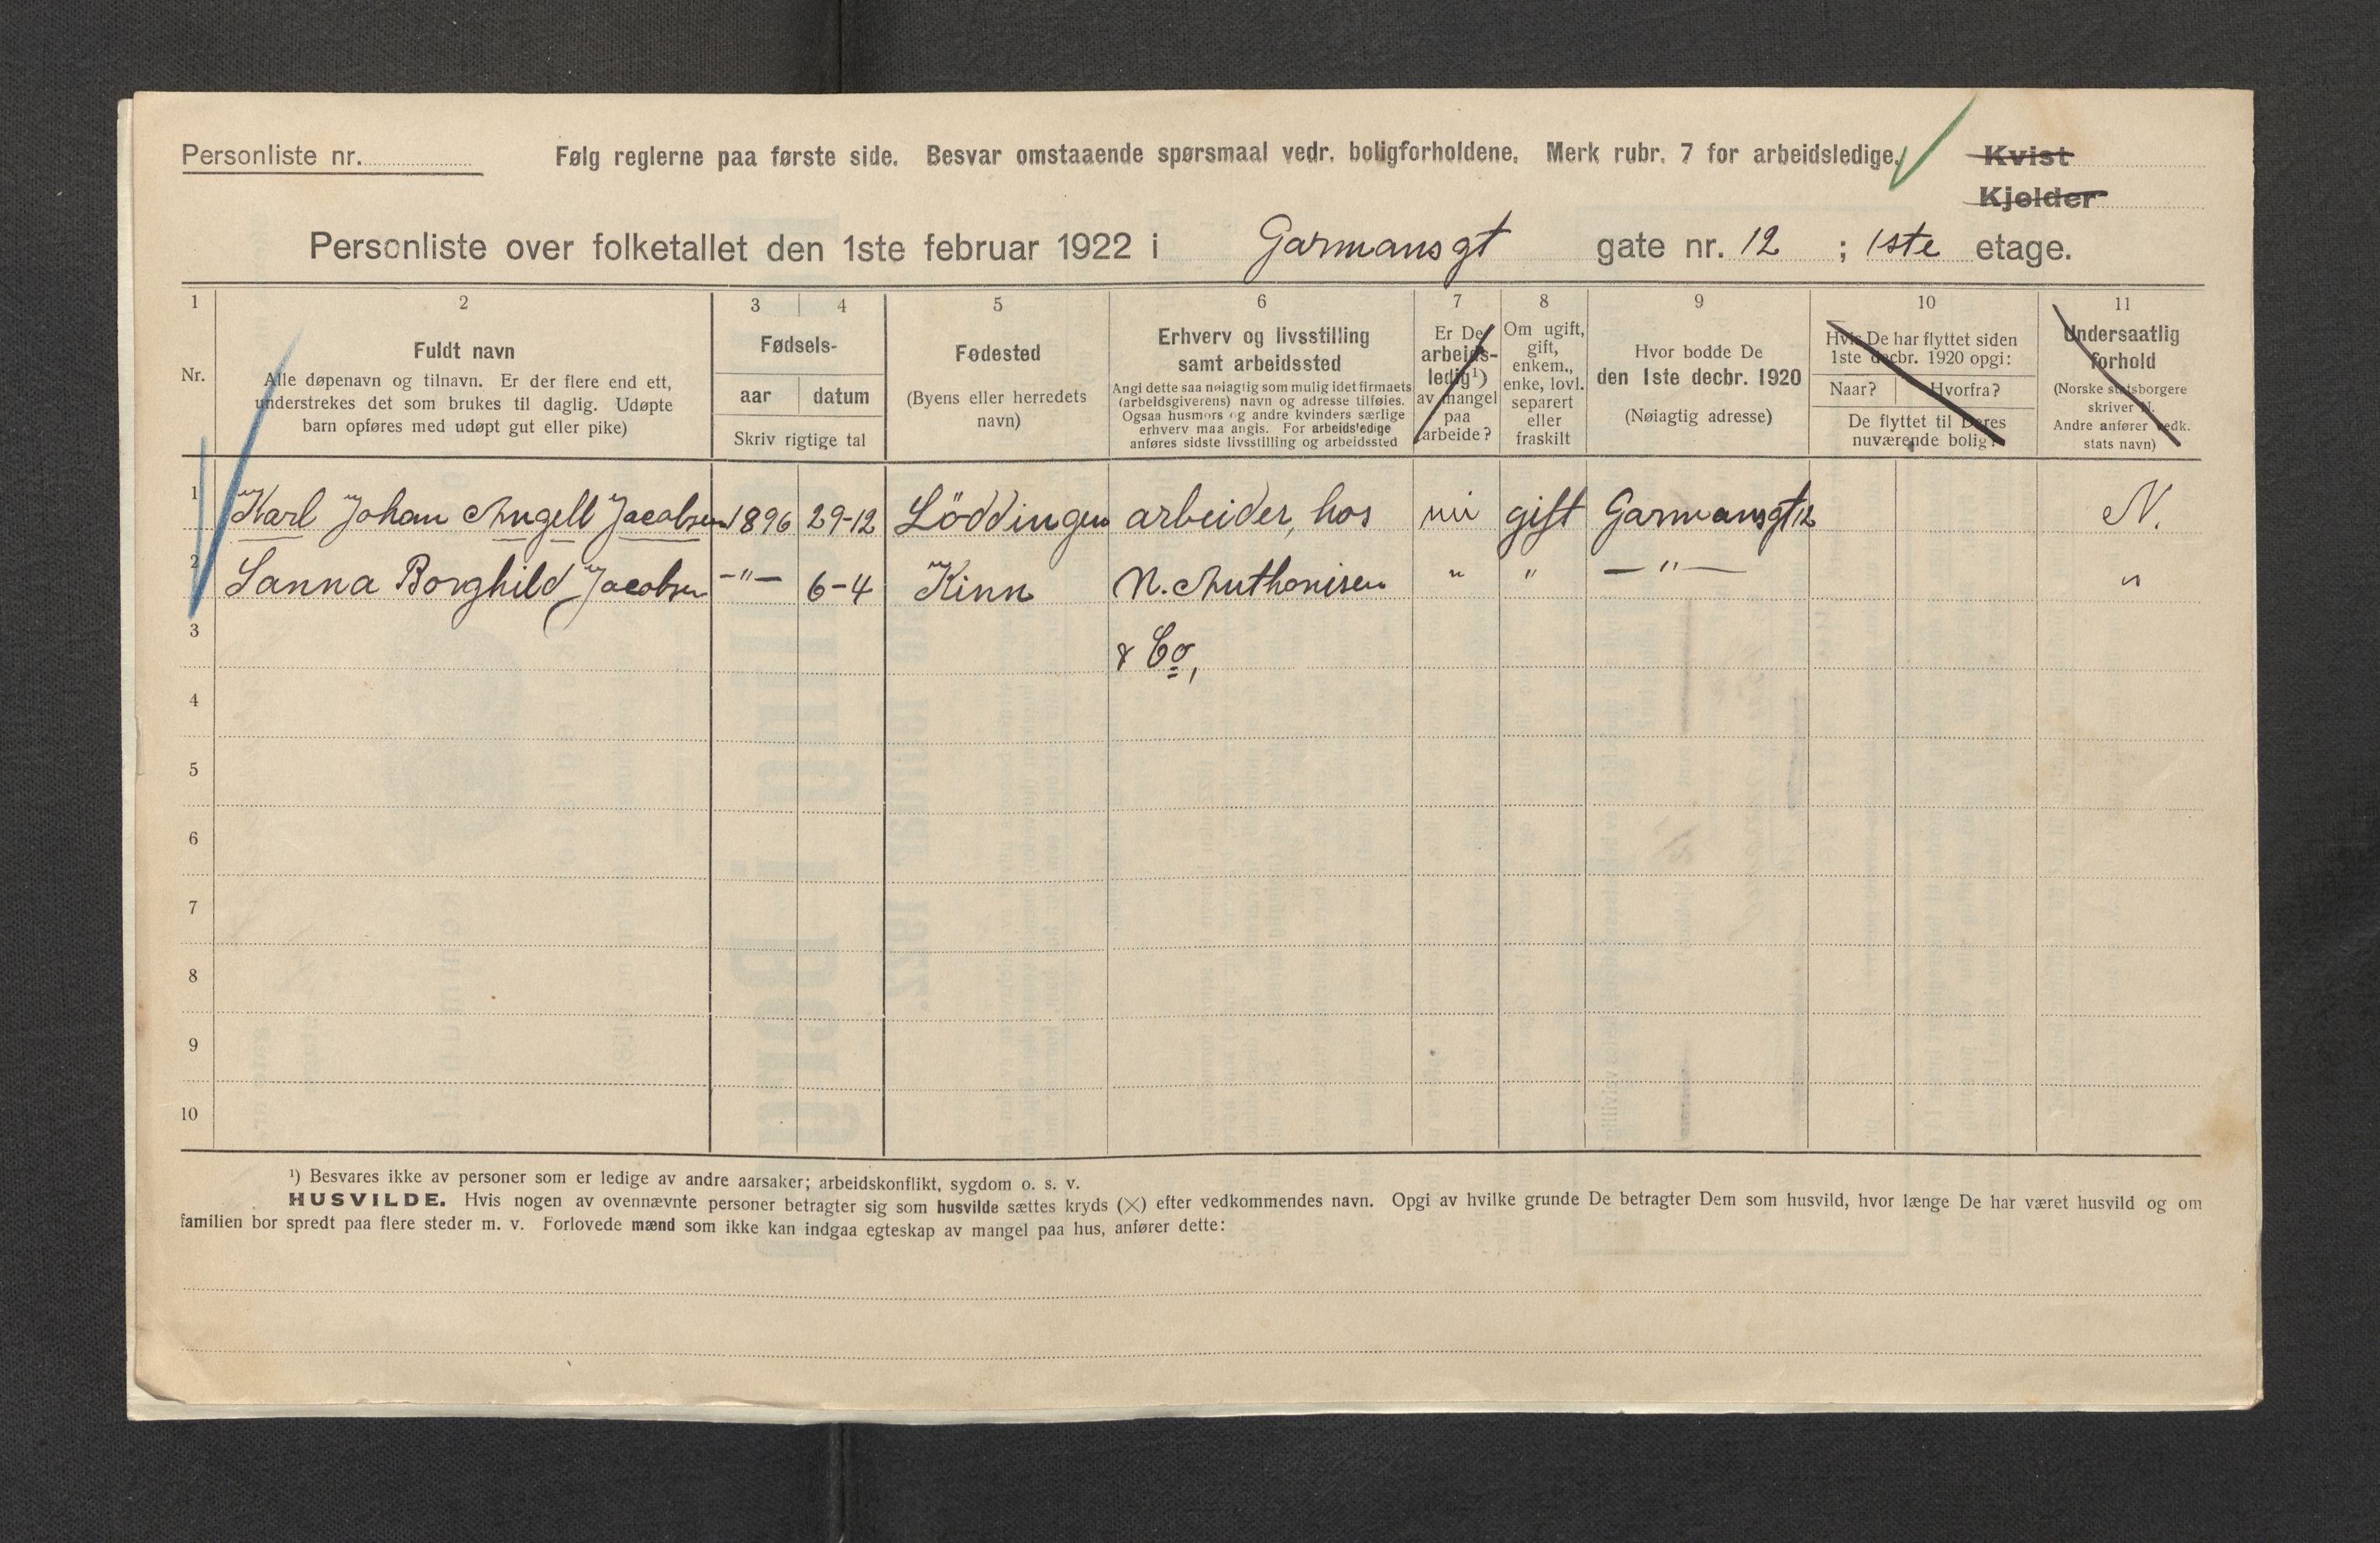 Personliste nr.
Følg reglerne paa første side. Besvar omstaaende spørsmaal vedr. boligforholdene. Merk rubr. 7 for arbeidsledige.
Kvist
Kjelder
Personliste over folketallet den 1ste februar 1922 i Garmansgt gate nr. 12 ; 1ste etage.
1 2 3 4 5 6 7 8 9 10 11
Nr.
Fuldt navn
Alle døpenavn og tilnavn. Er der flere end ett,
understrekes det som brukes til daglig. Udøpte
barn opføres med udøpt gut eller pike)
Fødsels-
aar datum
Skriv rigtige tal
Fødested
(Byens eller herredets
navn)
Erhverv og livsstilling
samt arbeidssted
Angi dette saa nøiagtig som mulig idet firmaets
(arbeidsgiverens) navn og adresse tilføies.
Ogsaa husmors og andre kvinders særlige
erhverv maa angis. For arbeidsledige
anføres sidste livsstilling og arbeidssted
Er De
arbeids-
ledig¹)
av mangel
paa
arbeide?
Om ugift,
gift,
enkem.,
enke, lovl.
separert
eller
fraskilt
Hvor bodde De
den 1ste decbr. 1920
(Nøiagtig adresse)
Hvis De har flyttet siden
1ste decbr. 1920 opgi:
Naar? Hvorfra?
De flyttet til Deres
nuværende bolig?
Undersaatlig
forhold
(Norske statsborgere
skriver N.
Andre anfører vedk.
stats navn)
1 Karl Johan Angell Jacobsen 1896 29-12 Löddingen arbeider, hos nei gift Garmansgt 12 N.
2 Sanna Borghild Jacobsen -"- 6-4 Kinn N. Anthonisen " " -"- "
3 & Co,
4
5
6
7
8
9
10
¹) Besvares ikke av personer som er ledige av andre aarsaker; arbeidskonflikt, sygdom o. s. v.
HUSVILDE. Hvis nogen av ovennævnte personer betragter sig som husvilde sættes kryds (×) efter vedkommendes navn. Opgi av hvilke grunde De betragter Dem som husvild, hvor længe De har været husvild og om
familien bor spredt paa flere steder m. v. Forlovede mænd som ikke kan indgaa egteskap av mangel paa hus, anfører dette: